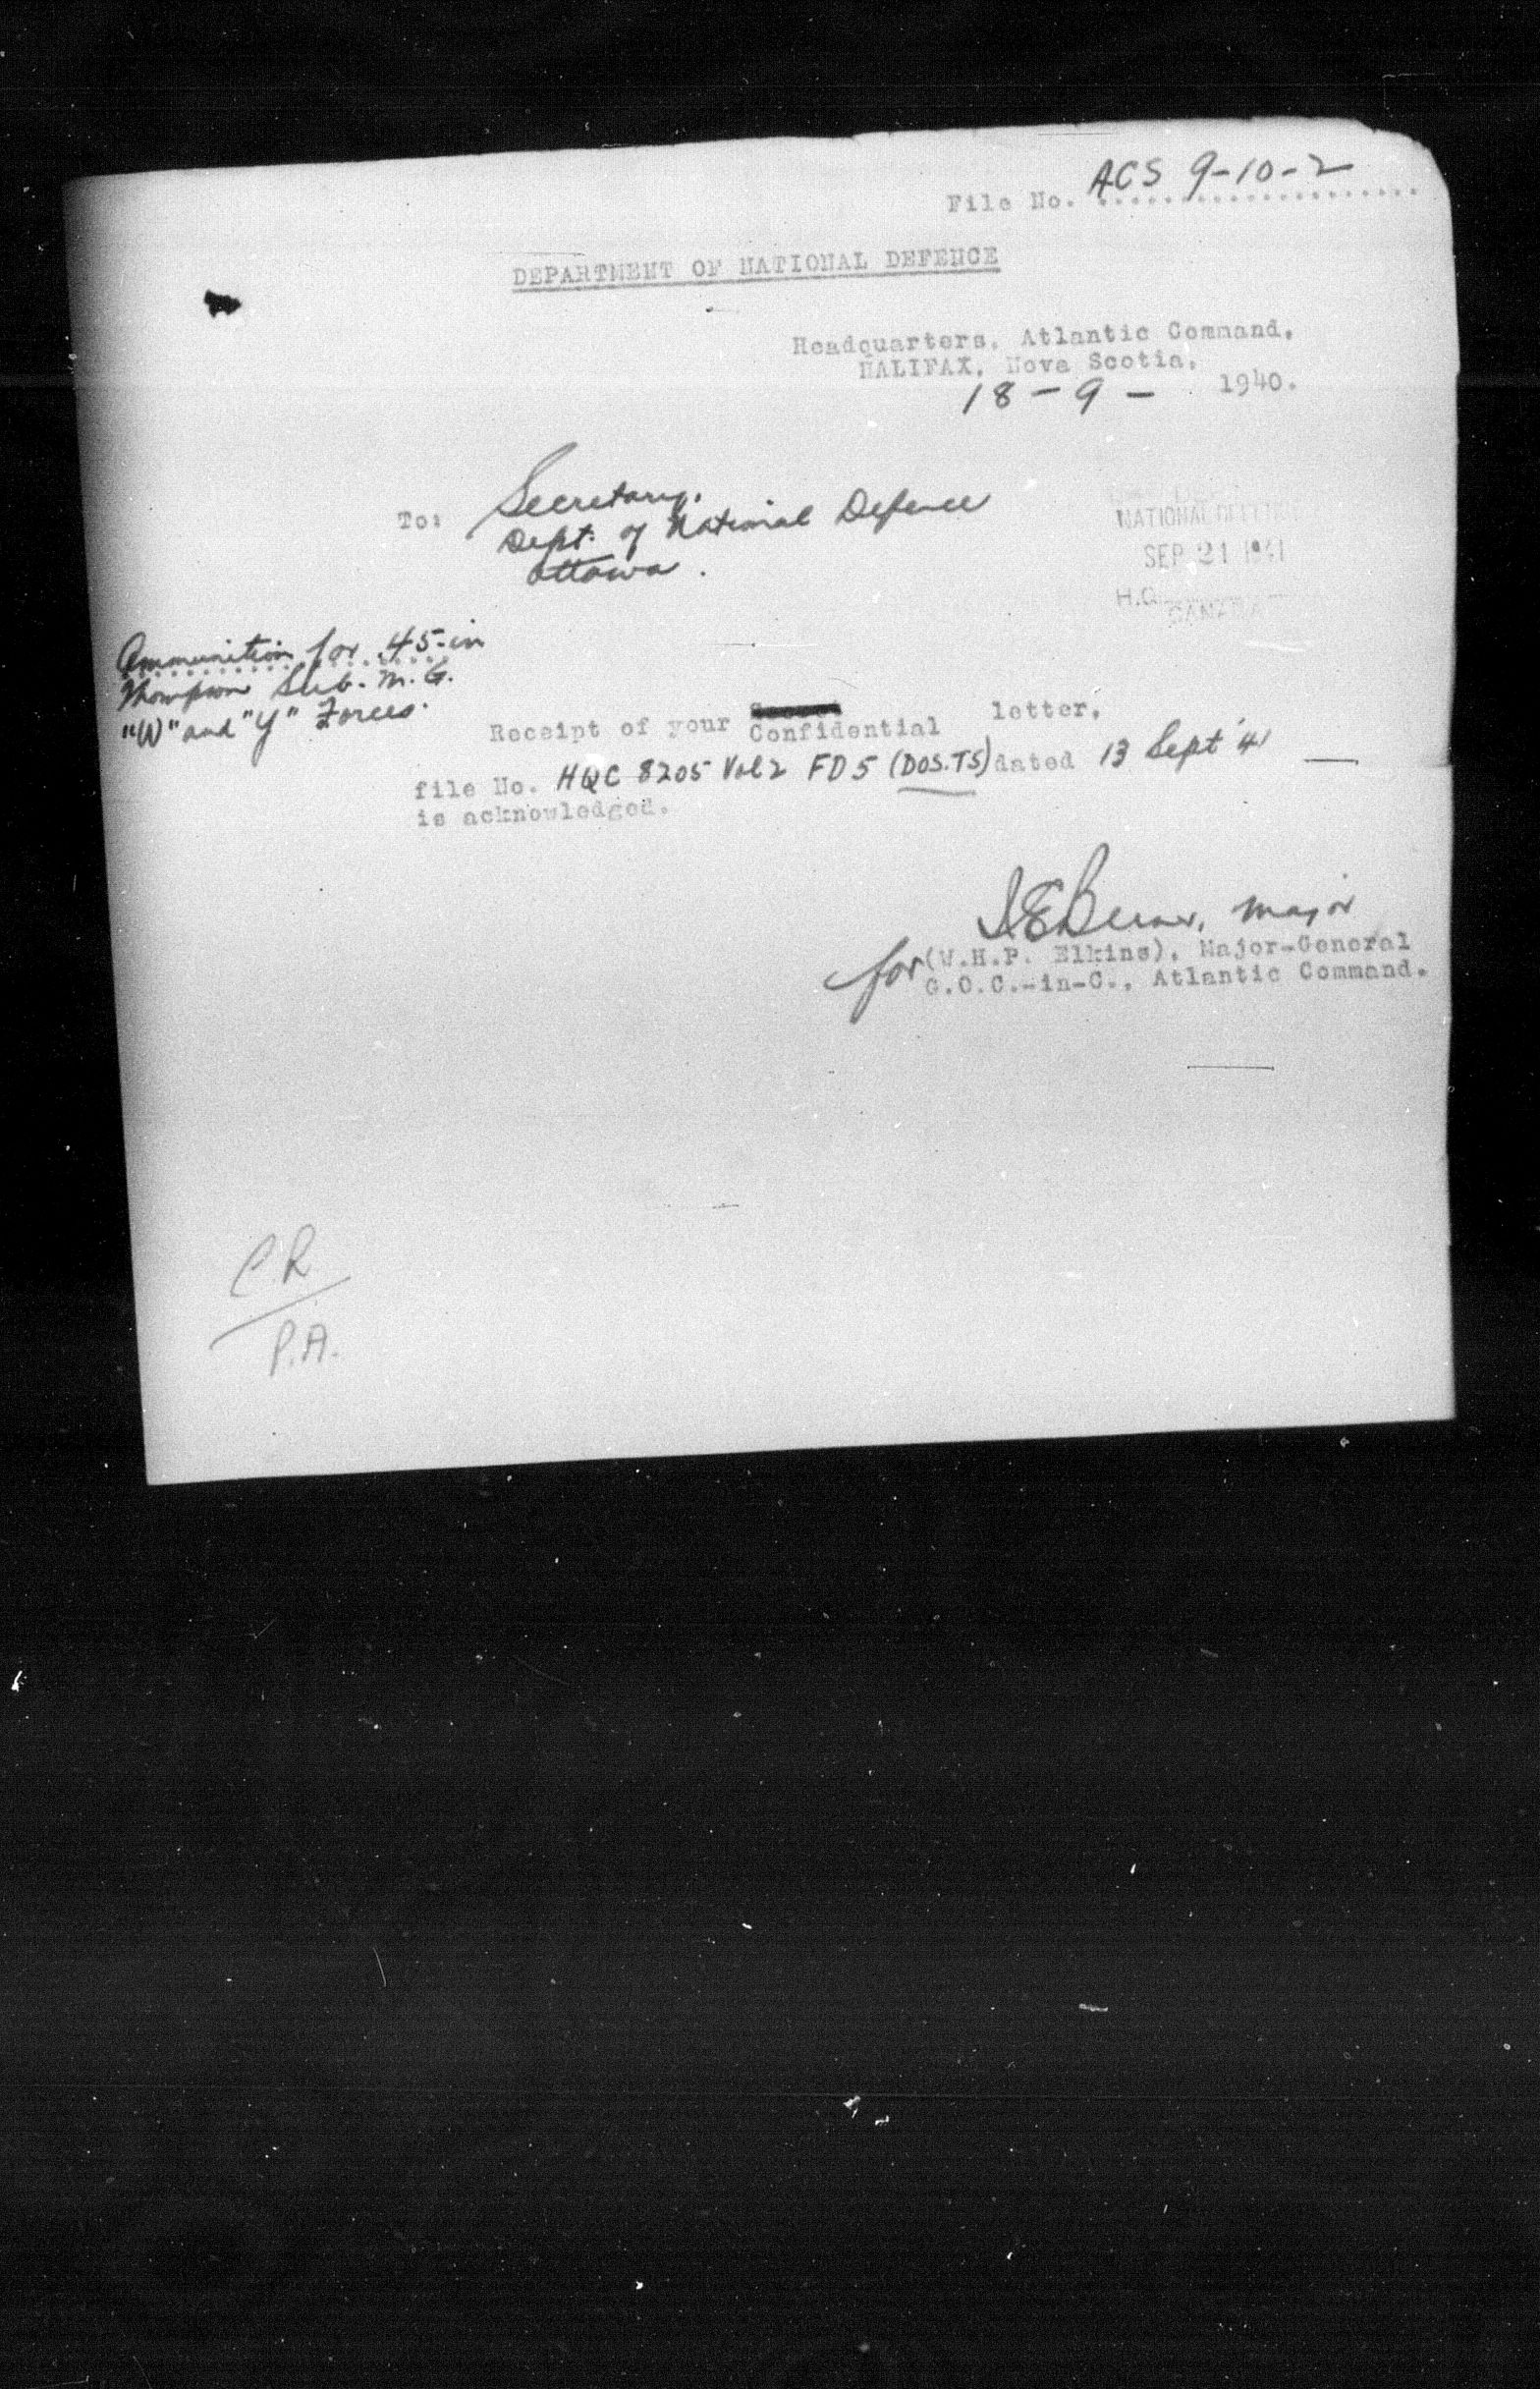 File No. ACS 9-10-2
DEPARTMENT OF NATIONAL DEFENCE
Headquarters, Atlantic Command,
HALIFAX, Nova Scotia,
18 - 9 - 1940.
To: Secretary,
Dept. of National Defence
Ottawa.
NATIONAL DEFENCE
SEP 21 1941
H.Q.
CANADA
Ammunition for .45-in
Thompson Sub. M.G.
"W" and "Y" Forces.
Receipt of your Confidential letter,
file No. HQC 8205 Vol 2 FD5 (DOS.TS) dated 13 Sept '41
is acknowledged.
Major
for (W.H.P. Elkins), Major-General
G.O.C.-in-C., Atlantic Command.
CR
P.A.